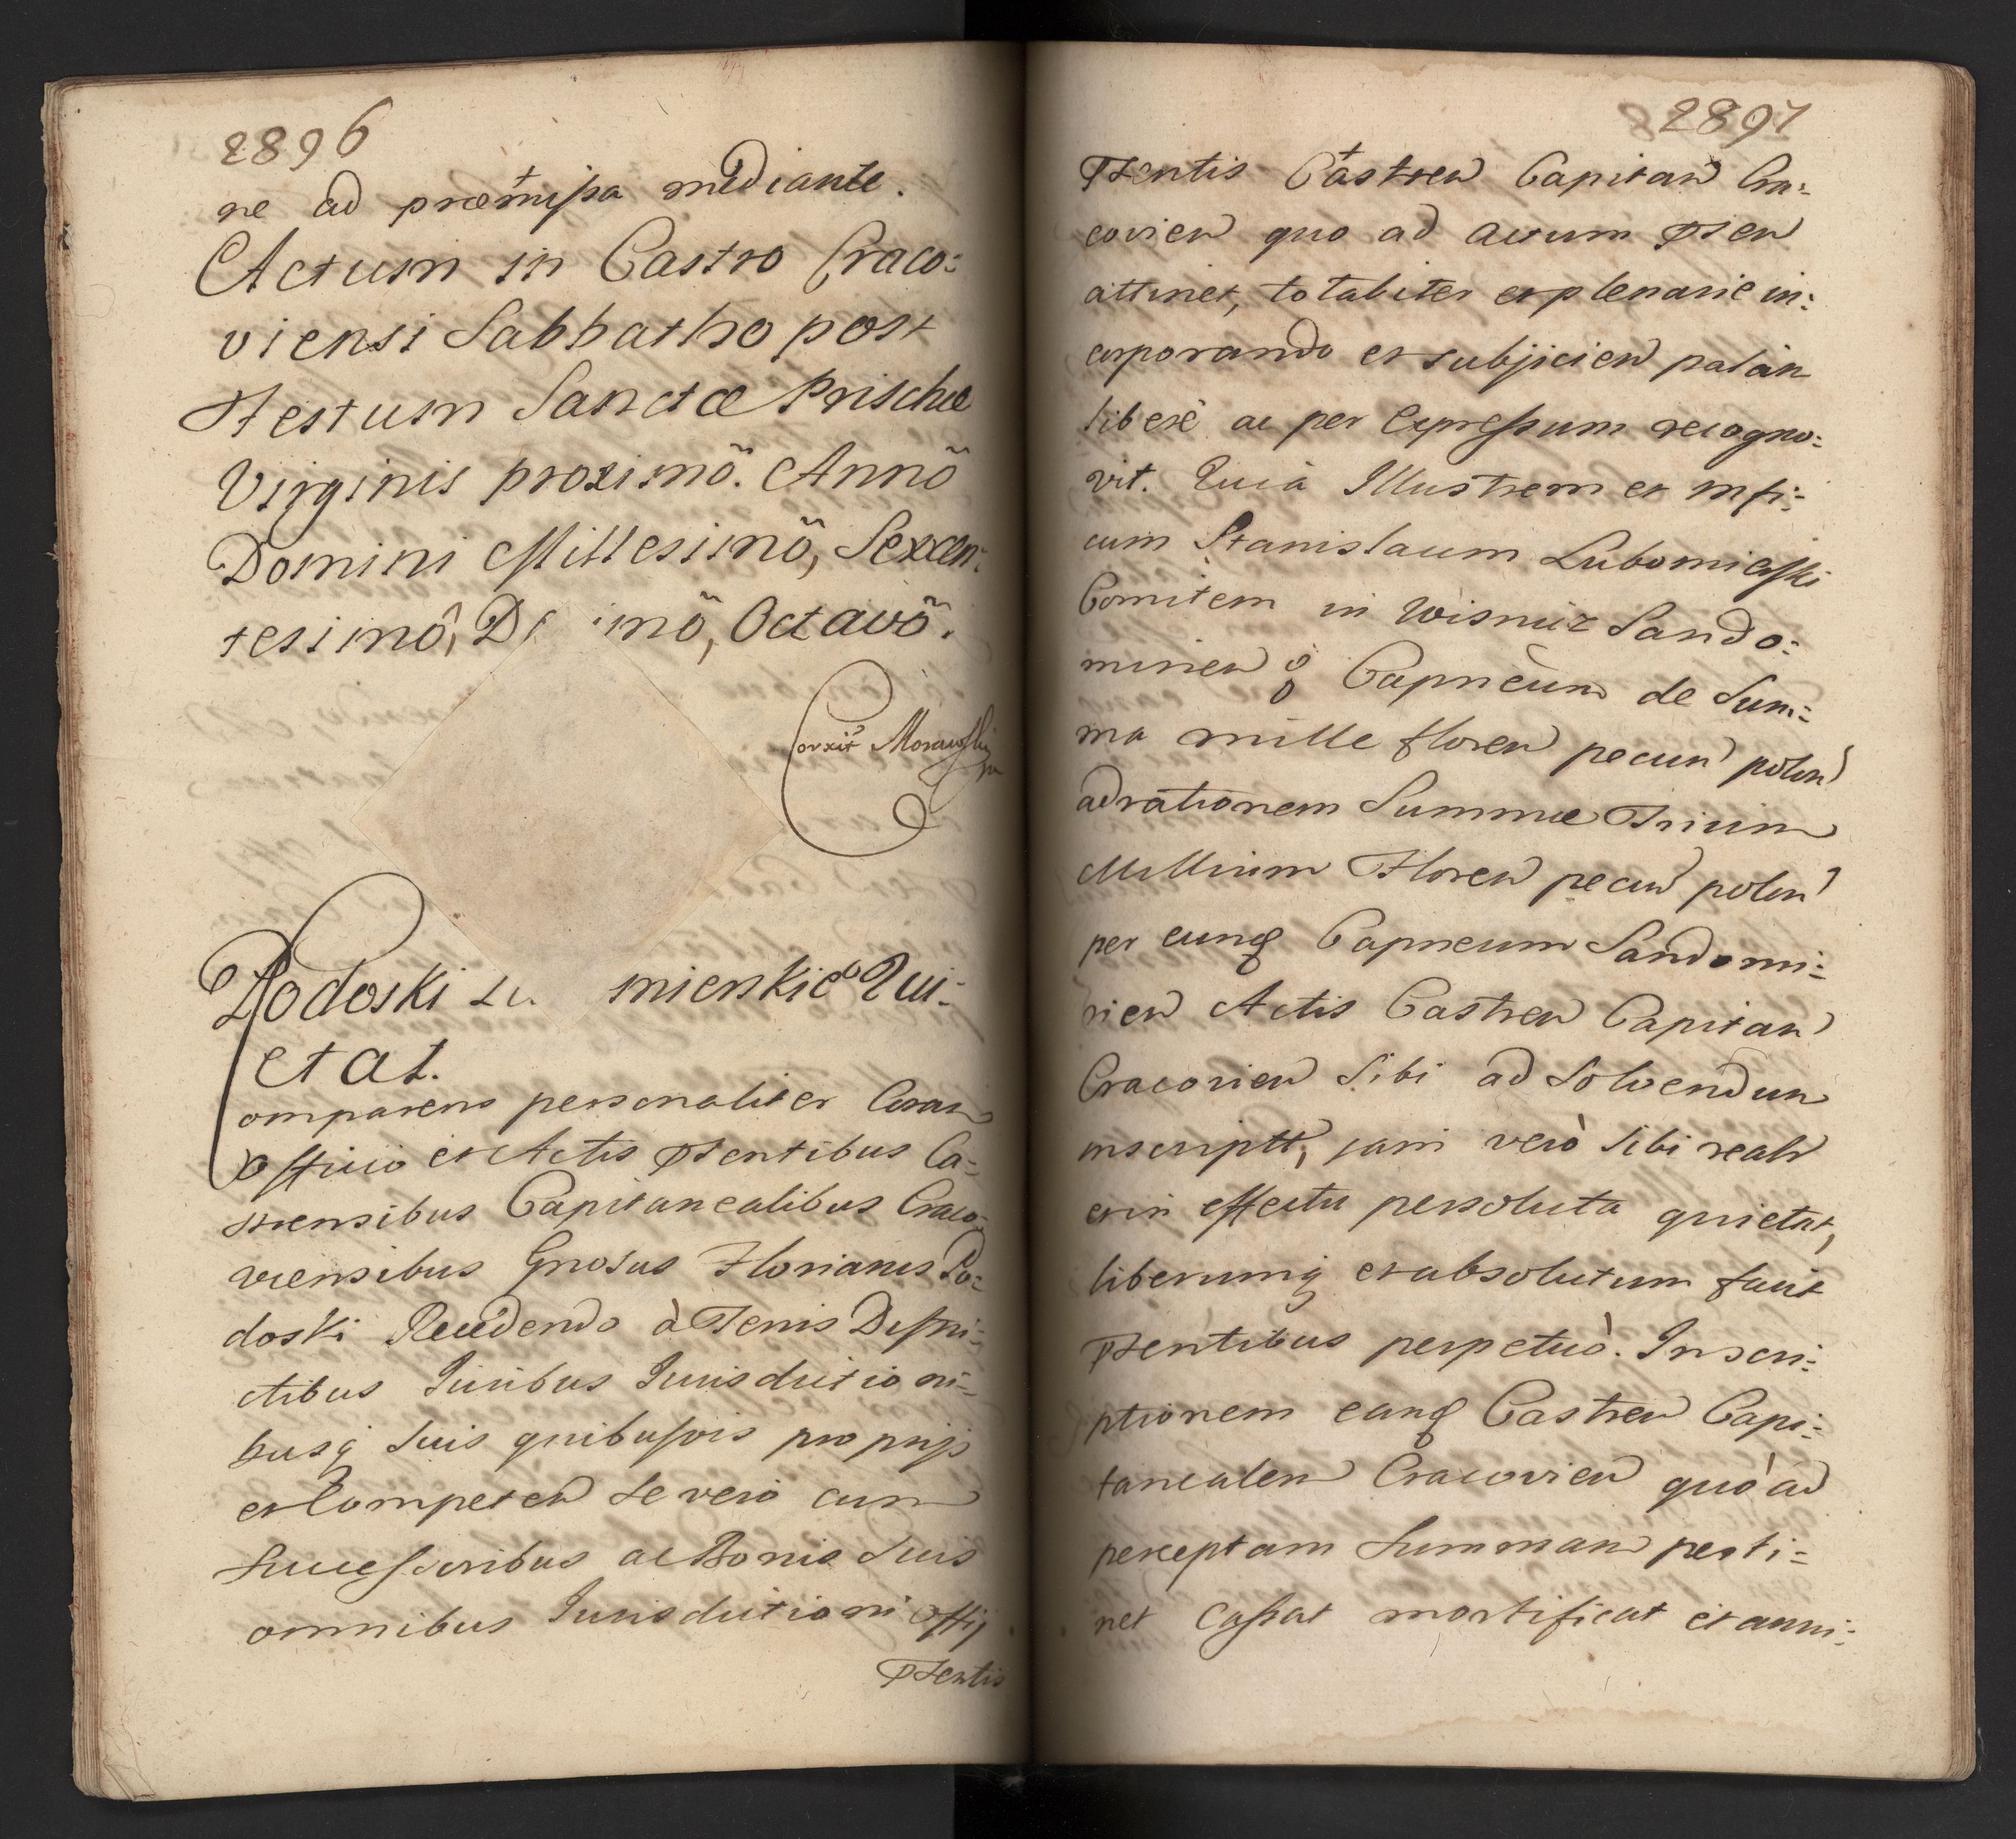 2896
ne ad præmissa mediante.
Actum in Castro Craco:
viensi Sabbatho post
Festum Sanctæ Prischæ
Virginis proximô. Annô
Domini Millesimô, Sexcen:
tesimô, D mô, Octavô.
Corxit Morawski
Podoski Lu mierskie Qui:
etat.
Comparens personaliter Coram
Officio et Actis Pntentibus Ca:
strensibus Capitanealibus Craco:
viensibus Gnosus Florianus Po:
doski Recedendo à Terris Distri:
ctibus Juribus Jurisdictioni:
busq suis quibusvis proprijs
et Competen se vero cum
Successoribus ac Bonis Suis
omnibus Jurisdictioni Offij
Pntentis
2897
Pntentis Castren Capitan Cra:
covien quo ad actum Pnten
attinet, totaliter et plenarie in:
corporando et subjicien palam
libere ac per Expressum recogno:
vit. Quia Illustrem et Mfi:
cum Stanislaum Lubomirski
Comitem in Wisnicz Sando:
mirien Capneum de Sum:
ma mille floren pecun polon
ad rationem Summæ Trium
Millium Floren pecun polon
per eunq Capneum Sandomi:
rien Actis Castren Capitan
Cracovien Sibi ad Solvendum
inscriptt, jam verò Sibi realr
et in effectu persoluta quietat,
liberumq et absolutum facit
Pntentibus perpetuò. Inscri:
ptionem eanq Castren Capi:
tanealem Cracovien quò ad
perceptam Summam perti:
net Cassat mortificat et anni: